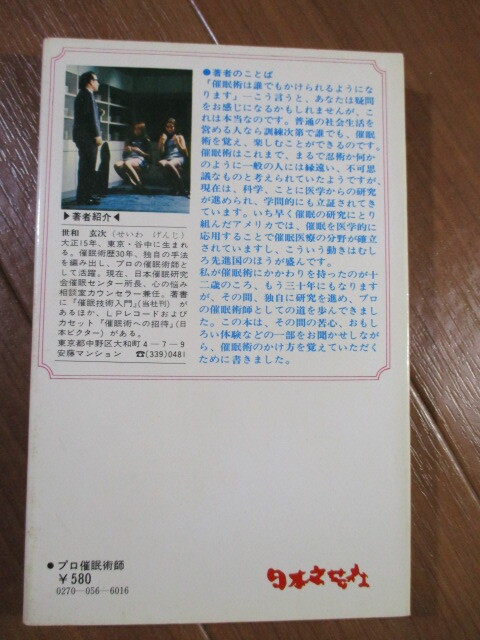 ●著者のことば
「催眠術は誰でもかけられるようにな
ります」―こう言うと、あなたは疑問
をお感じになるかもしれませんが、こ
れは本当なのです。普通の社会生活を
営める人なら訓練次第で誰でも、催眠
術を覚え、楽しむことができるのです。
催眠術はこれまで、まるで忍術か何か
のように一般の人には縁遠い、不可思
議なものと考えられていたようですが、
現在は、科学、ことに医学からの研究
が進められ、学問的にも立証されてき
ています。いち早く催眠の研究にとり
組んだアメリカでは、催眠を医学的に
応用することで催眠医療の分野が確立
されていますし、こういう動きはむし
ろ先進国のほうが盛んです。
私が催眠術にかかわりを持ったのが十
二歳のころ、もう三十年にもなります
が、その間、独自に研究を進め、プロ
の催眠術師としての道を歩んできまし
た。この本は、その間の苦心、おもし
ろい体験などの一部をお聞かせしなが
ら、催眠術のかけ方を覚えていただく
ために書きました。
▶著者紹介◀
世和 玄次(せいわ げんじ)
大正15年、東京・谷中に生まれ
る。催眠術歴30年、独自の手法
を編み出し、プロの催眠術師とし
て活躍。現在、日本催眠研究
会催眠センター所長、心の悩み
相談室カウンセラー兼任。著書
に「催眠技術入門」(当社刊)が
あるほか、LPレコードおよび
カセット「催眠術への招待」(日
本ビクター)がある。
東京都中野区大和町4-7-9
安藤マンション ☎(339)0481
●プロ催眠術師
¥580
0270-056-6016
日本文芸社